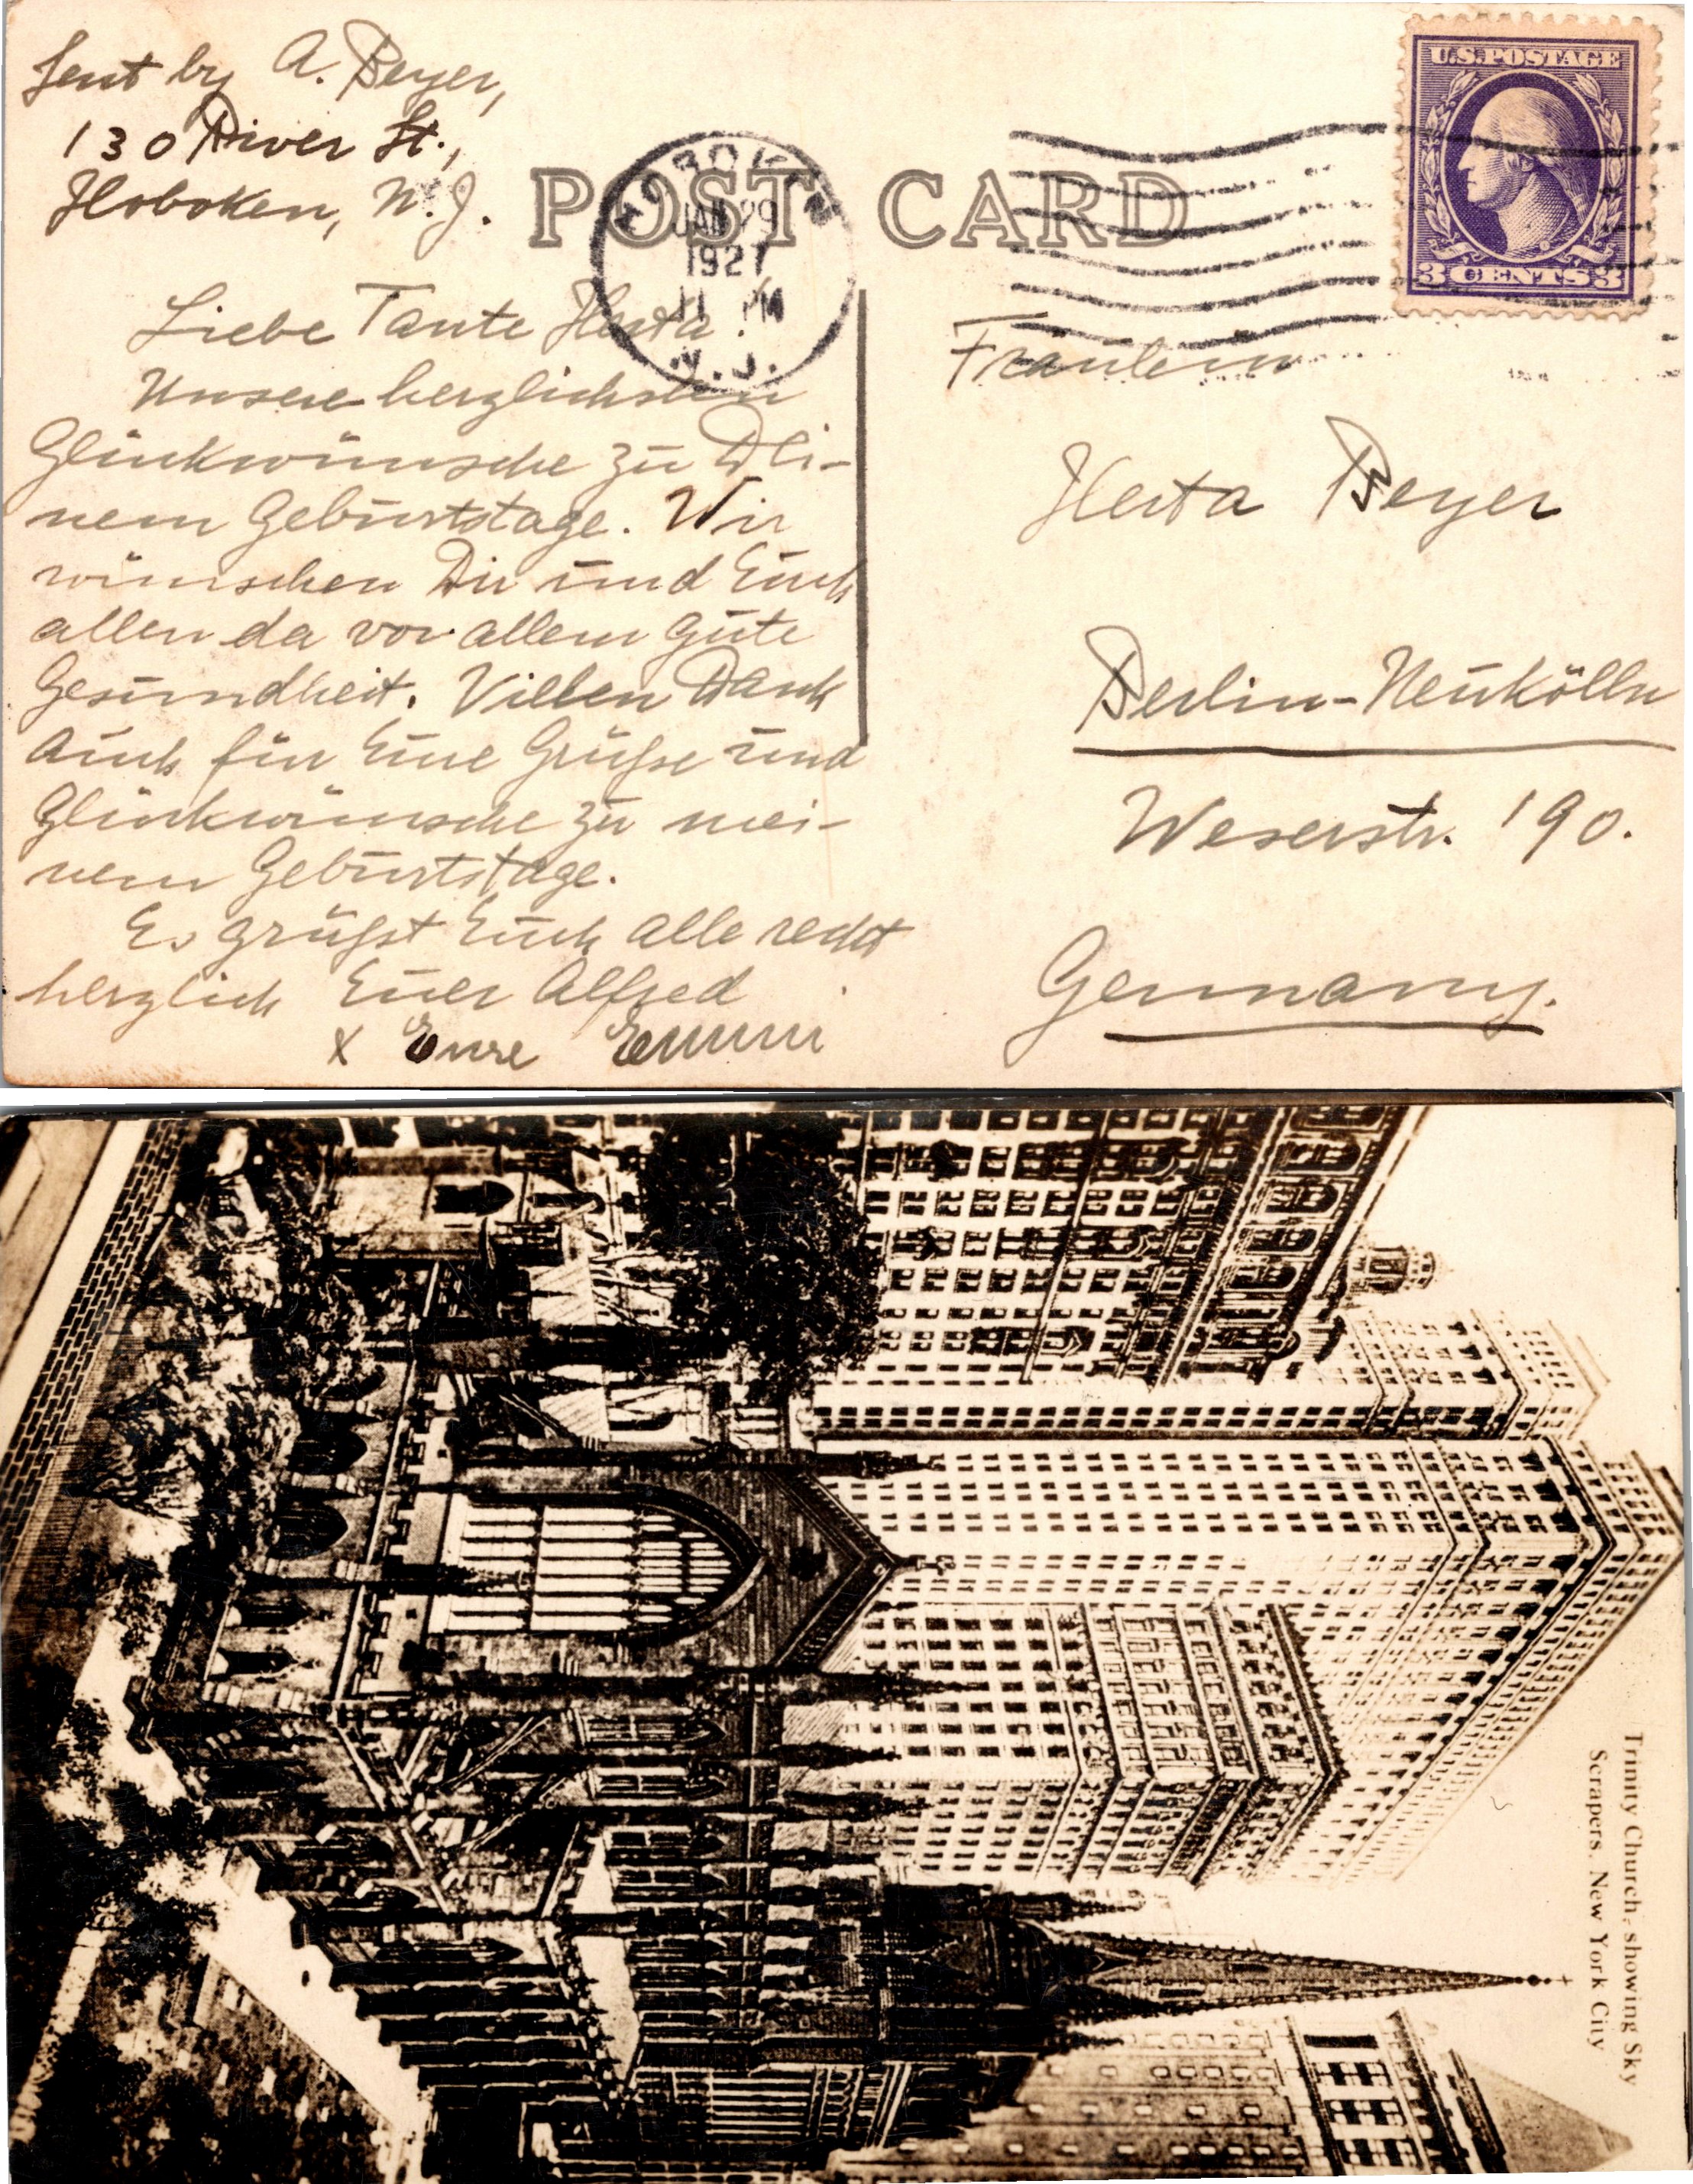 Sent by A. Beyer,
130 River St.,
Hoboken, N.J.
POST CARD
HOBOKEN
JAN 29
1927
11 PM
N.J.
U.S. POSTAGE
3 CENTS 3
Liebe Tante Herta!
Unsere herzlichsten
Glückwünsche zu Dei-
nem Geburtstage. Wir
wünschen Dir und Euch
allen da vor allem gute
Gesundheit. Vielen Dank
auch für Eure Grüße und
Glückwünsche zu mei-
nem Geburtstage.
Es grüßt Euch alle recht
herzlich Euer Alfred
x Eure
Fräulein
Herta Beyer
Berlin-Neukölln
Weserstr. 190.
Germany.
Trinity Church, showing Sky
Scrapers, New York City